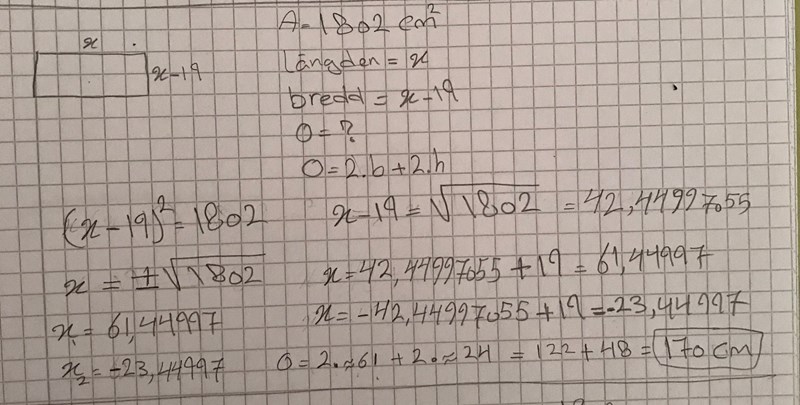 x
x-19
A=1802 cm²
Längden = x
bredd = x-19
O=?
O=2.b+2.h
(x-19)²=1802
x-19=√1802 = 42,44997055
x = ±√1802
x=42,44997055+19=61,44997
x=61,44997
x=-42,44997055+19=-23,44997
x₂=-23,44997
O=2.≈61+2.≈24=122+48=170 cm